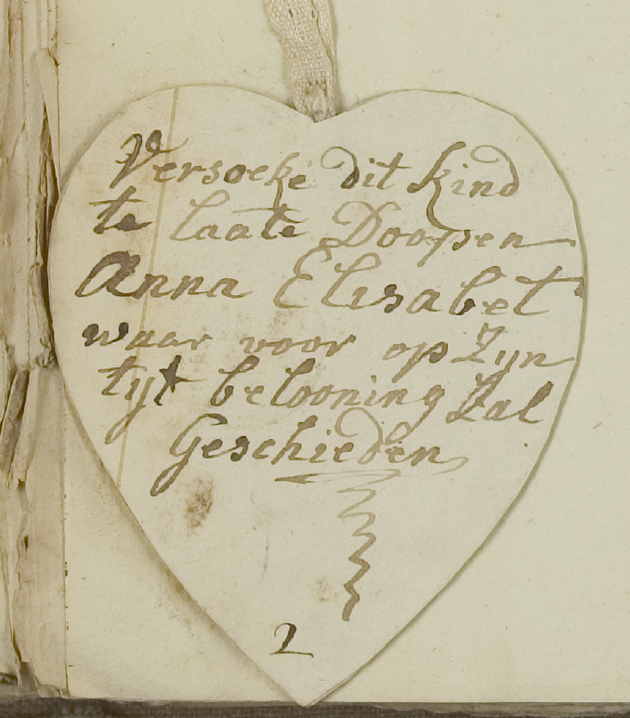 Versoeke dit kind
te laate Doopsen
Anna Elisabet
waar voor op Zyn
tyt belooning Zal
Geschieden
2